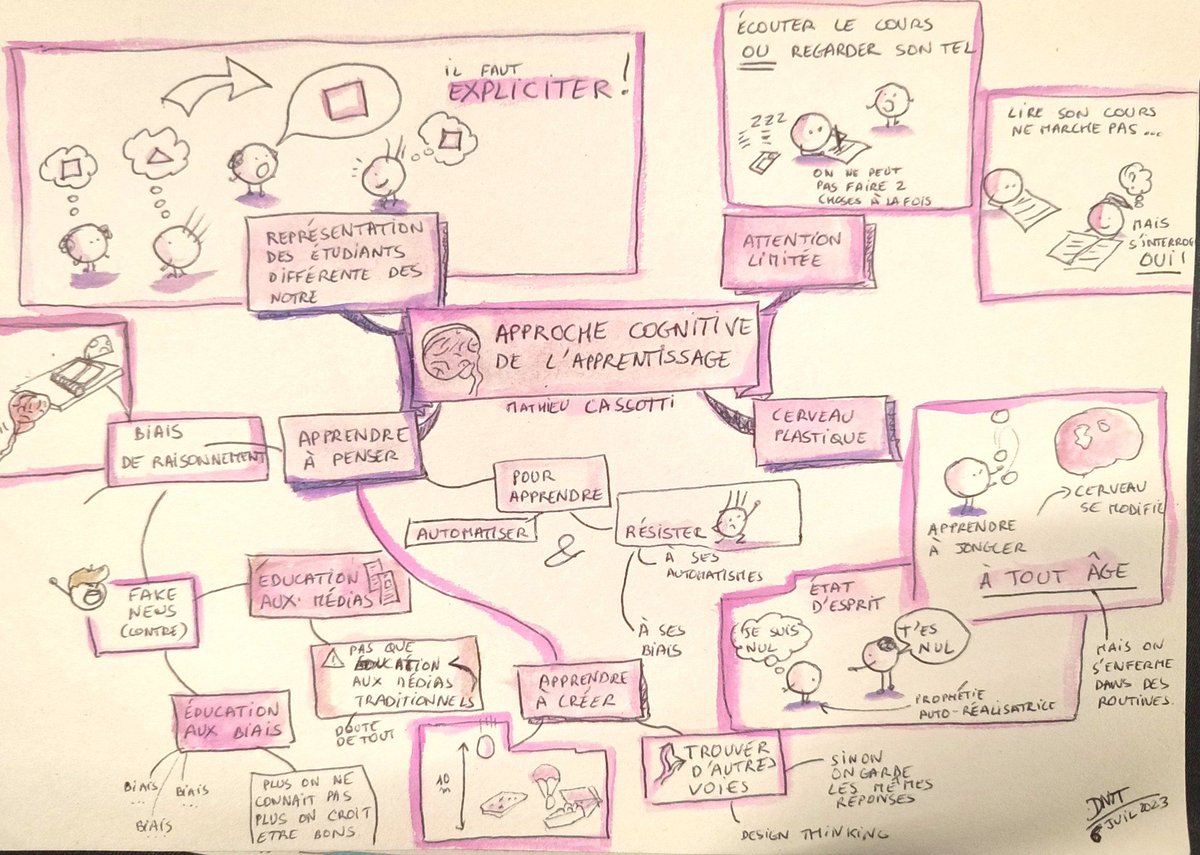 IL FAUT
EXPLICITER !
REPRÉSENTATION
DES ÉTUDIANTS
DIFFÉRENTE DES
NOTRE
ÉCOUTER LE COURS
OU REGARDER SON TEL
ZZZ
ON NE PEUT
PAS FAIRE 2
CHOSES À LA FOIS
LIRE SON COURS
NE MARCHE PAS ...
?
MAIS
S'INTERROG
OUI !
ATTENTION
LIMITÉE
APPROCHE COGNITIVE
DE L'APPRENTISSAGE
MATHIEU CASSOTTI
CERVEAU
PLASTIQUE
APPRENDRE
À JONGLER
CERVEAU
SE MODIFIE
À TOUT ÂGE
MAIS ON
S'ENFERME
DANS DES
ROUTINES.
ÉTAT
D'ESPRIT
JE SUIS
NUL
T'ES
NUL
PROPHÉTIE
AUTO-RÉALISATRICE
APPRENDRE
À PENSER
BIAIS
DE RAISONNEMENT
POUR
APPRENDRE
AUTOMATISER
&
RÉSISTER
À SES
AUTOMATISMES
À SES
BIAIS
FAKE
NEWS
(CONTRE)
ÉDUCATION
AUX MÉDIAS
! PAS QUE
ÉDUCATION
AUX MÉDIAS
TRADITIONNELS
DOUTE
DE TOUT
ÉDUCATION
AUX BIAIS
BIAIS
...
BIAIS
...
BIAIS
...
PLUS ON NE
CONNAIT PAS
PLUS ON CROIT
ETRE BONS
APPRENDRE
À CRÉER
10
m
TROUVER
D'AUTRES
VOIES
SINON
ON GARDE
LES MÊMES
RÉPONSES
DESIGN THINKING
6 JUIL 2023